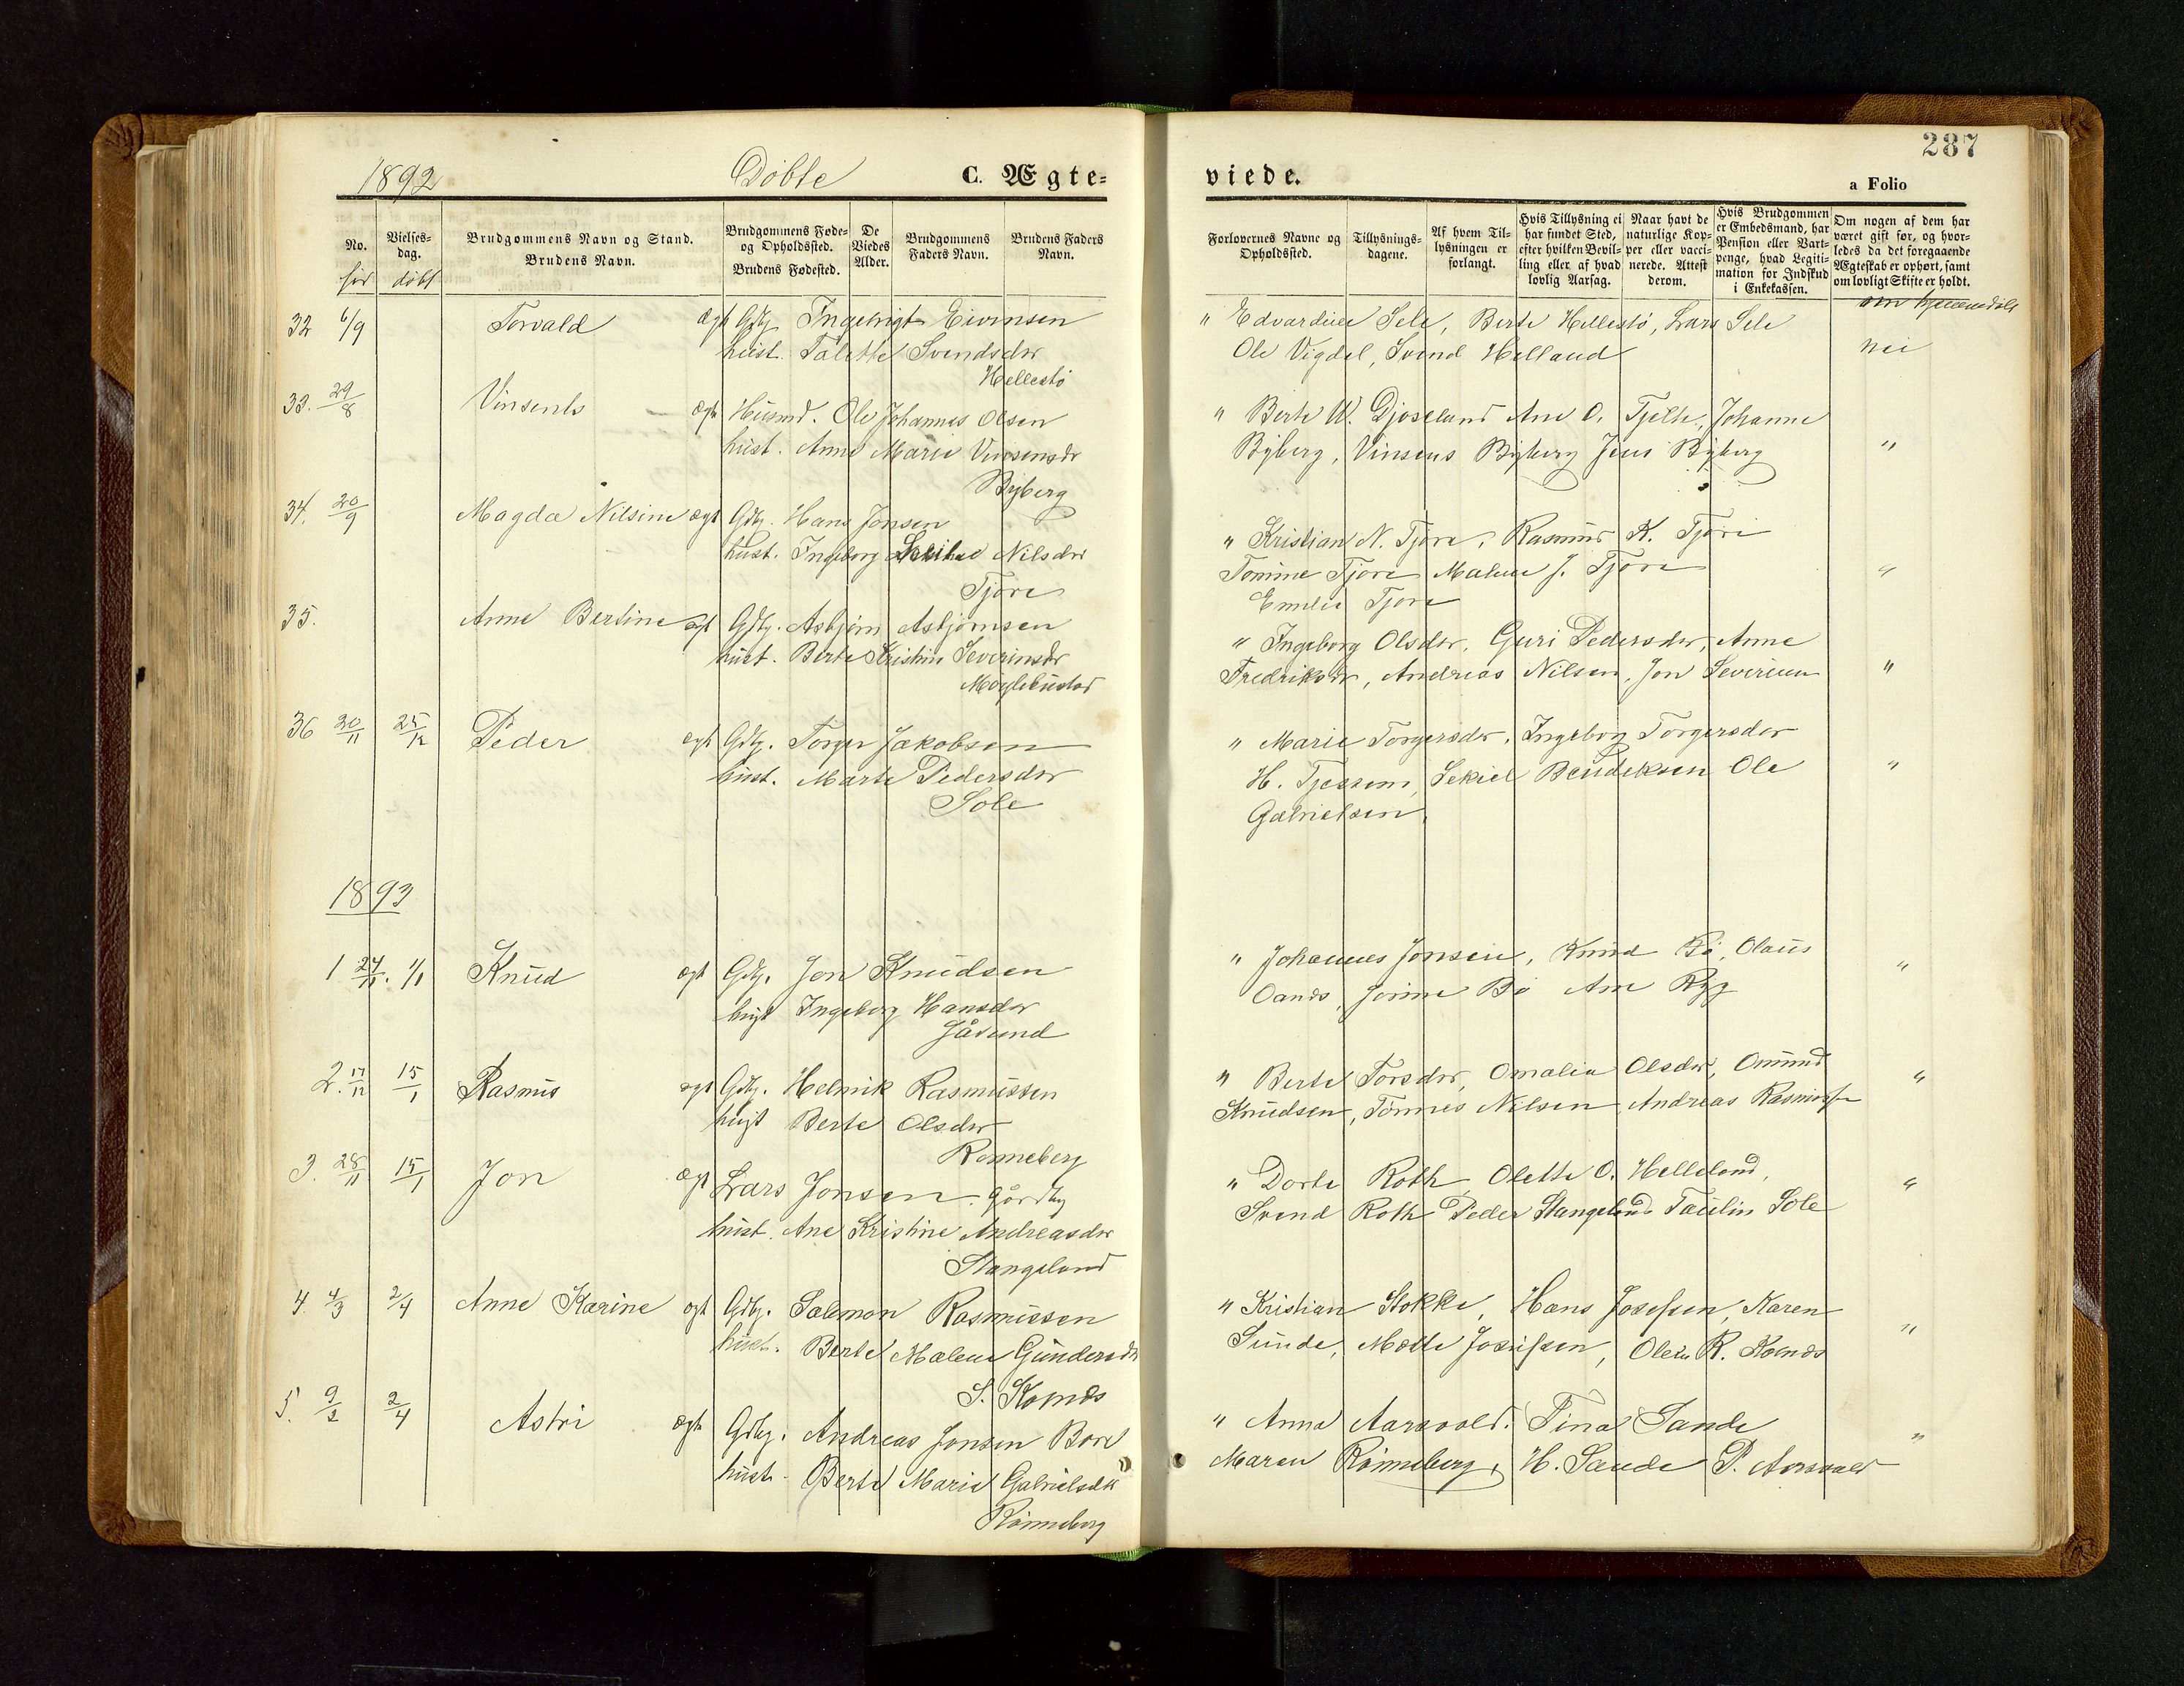 287
1892 Döbte C. Ægte=
viede. a Folio
No. Vielses-dag. Brudgommens Navn og Stand. Brudens Navn. Brudgommens Føde- og Opholdssted. Brudens Fødested. De Viedes Alder. Brudgommens Faders Navn. Brudens Faders Navn.
Forlovernes Navne og Opholdssted. Tillysnings-dagene. Af hvem Til-lysningen er forlangt. Hvis Tillysning ei har fundet Sted, efter hvilken Bevil-ling eller af hvad lovlig Aarsag. Naar havt de naturlige Kop-per eller vacci-nerede. Attest derom. Hvis Brudgommen er Embedsmand, har Pension eller Vart-penge, hvad Legiti-mation for Indskud i Enkekassen. Om nogen af dem har været gift før, og hvor-ledes da det foregaaende Ægteskab er ophørt, samt om lovligt Skifte er holdt.
död döbt
om hjemmedöbt
32 6/9 Torvald ægt Gdbr. Ingebrigt Eivinsen
hust. Talette Svendsdtr
Hellestö
" Edvardine Sele, Berte Hellestö, Lars Sele
Ole Vigdel, Svend Helland nei
33. 29/8 Vinsents ægte Husmd. Ole Johannes Olsen
hust. Anne Marie Vinsensdr
Byberg
" Berte W. Djoseland Ane O. Tjelte, Johanne
Byberg, Vinsens Byberg Jens Byberg "
34. 20/9 Magda Nilsine ægt Gdbr. Hans Jonsen
hust. Ingeborg Nilsdtr
Tjöre
" Kristian N. Tjöre, Rasmus K. Tjöre
Tomine Tjöre Malene J. Tjöre "
Emilie Tjöre
35. Anne Bertine ægt Gdbr. Asbjörn Asbjörnsen
hust. Berte Kristine Severinsdr
Möglebustad
" Ingeborg Olsdtr, Guri Pedersdtr, Anne
Fredriksdr, Andreas Nilsen, Jon Severinsen "
36 20/11 25/12 Peder ægt Gdbr. Torger Jakobsen
hust. Marte Pedersdtr
Sole
" Marie Torgersdtr, Ingeborg Torgersdtr
H. Tjessem, Sekiel Bendiksen Ole "
Gabrielsen.
1893
1 24/11. 1/1 Knud ægt Gdbr. Jon Knudsen
hust Ingeborg Hansdtr
Jåsund
" Johannes Jonsen, Knud Bö, Olaus "
Oanes, Jorine Bö Ane Ryg
2. 17/12 15/1 Rasmus ægt Gdbr. Helmik Rasmussen
hust Berte Olsdtr
Rönneberg
" Berte Torsdtr, Omalia Olsdtr, Omund "
Knudsen, Tönnes Nilsen Andreas Rasmussen
3. 28/11 15/1 Jon ægt Lars Jonsen
hust. Ane Kristine Andreasdtr
Stangeland
" Dorte Roth Olette O. Helleland, "
Svend Roth Peder Stangeland Taulin Sole
4. 4/3 2/4 Anne Karine ægt Gdbr. Salemon Rasmussen
hust. Berte Malene Gundersdtr
S. Kolnes
" Kristian Stokke, Hans Josefsen, Karen
Sunde, Mette Josefsen, Olene R. Kolnes "
5. 9/2 2/4 Astri ægte Gdbr. Andreas Jonsen Bore
hust. Berte Marie Gabrielsdtr
Rönneberg
" Anna Aarsvold. Tina Sande
Maren Rönneberg, H. Sande P. Aarsvold "